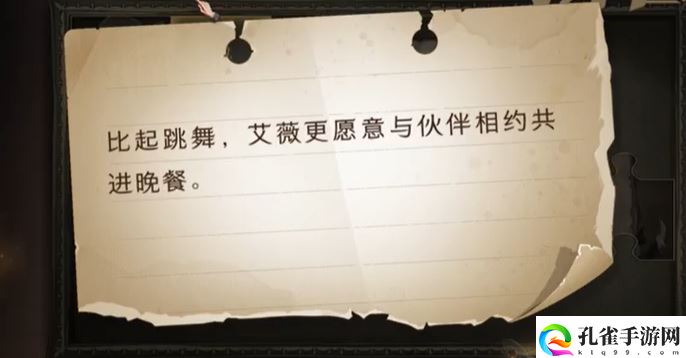 比起跳舞，艾薇更愿意与伙伴相约共
进晚餐。
孔雀手游网
ktq99.com